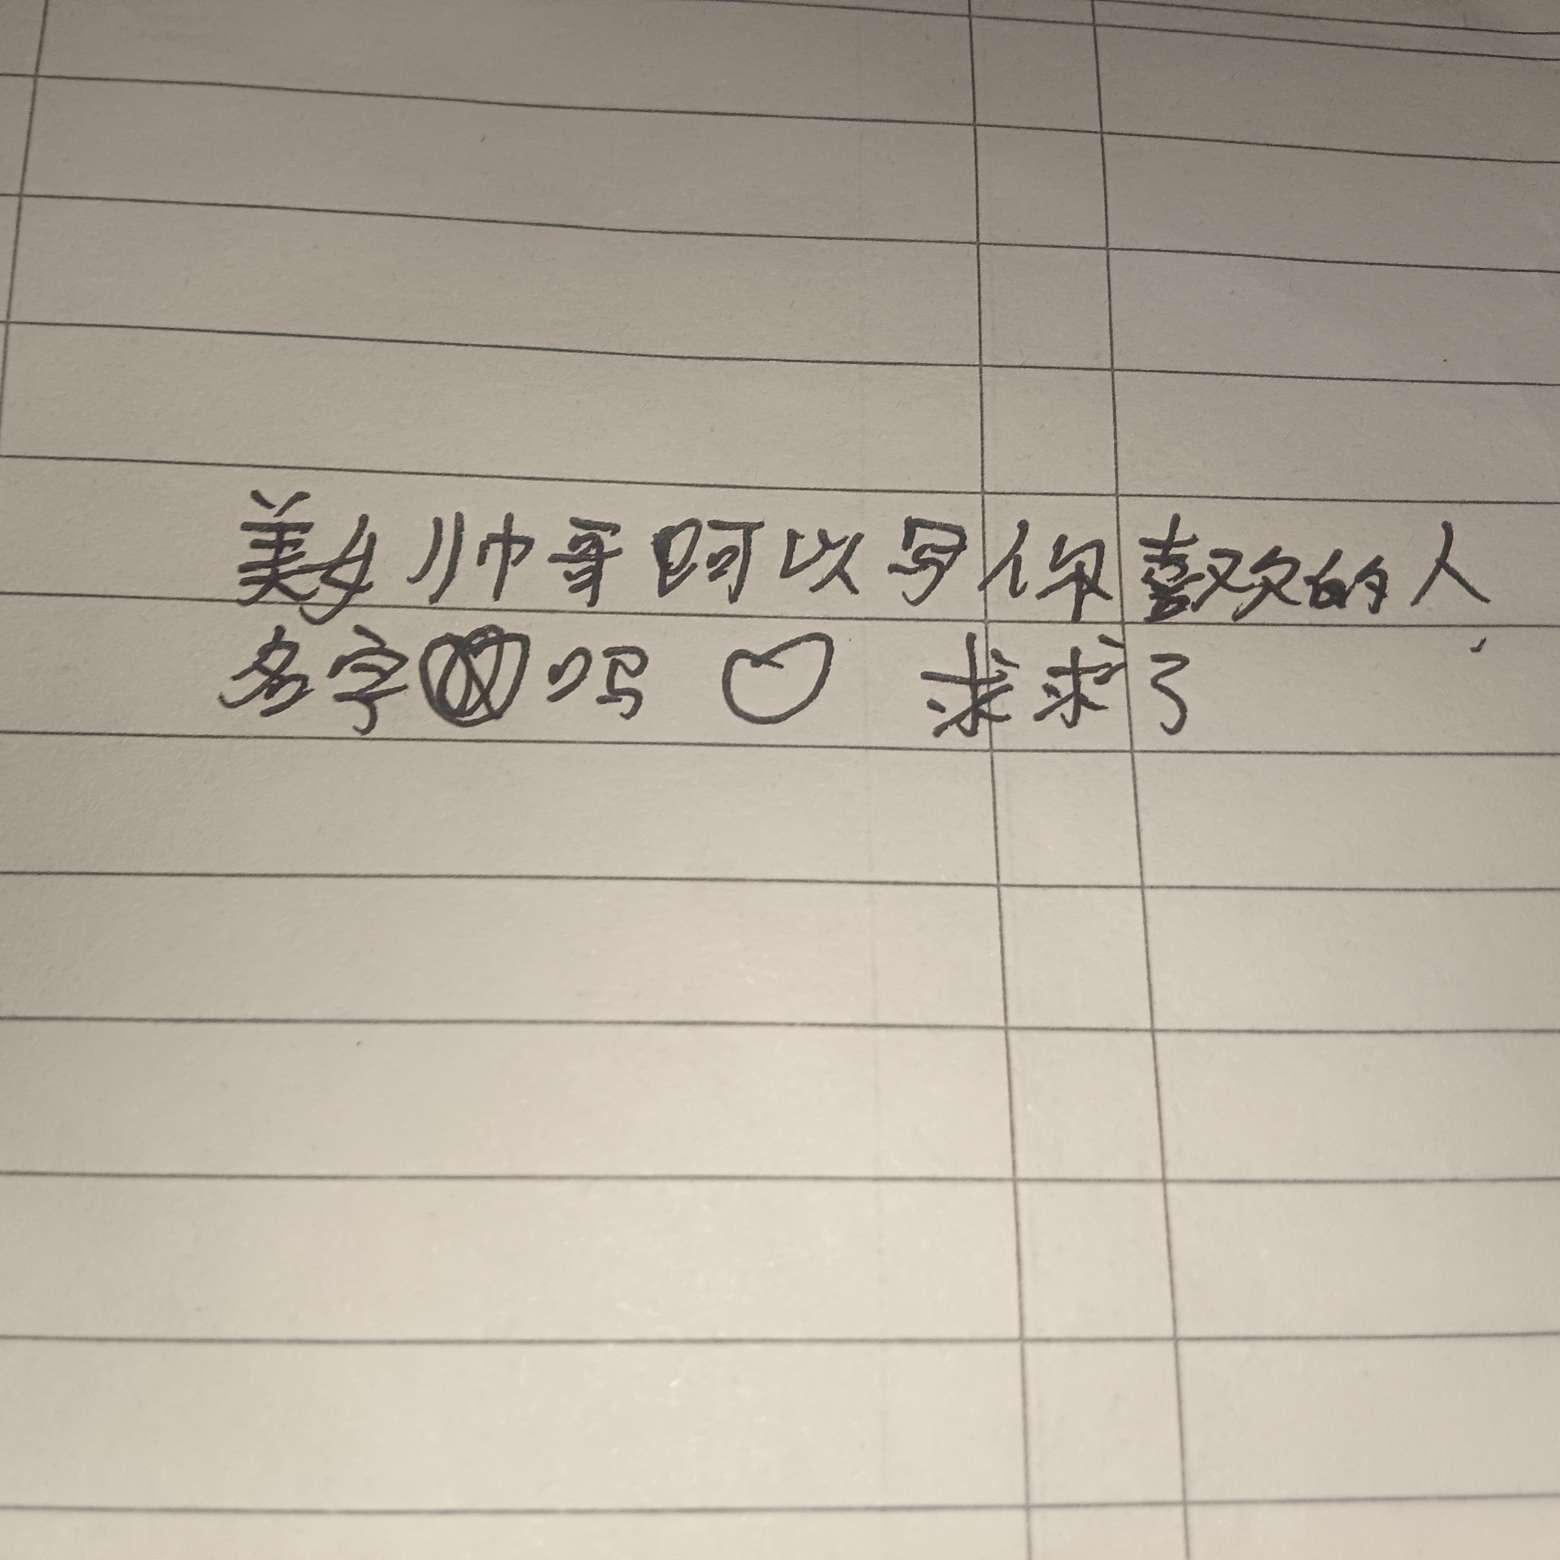 美女帅哥可以写你喜欢的人
名字吗 求求了